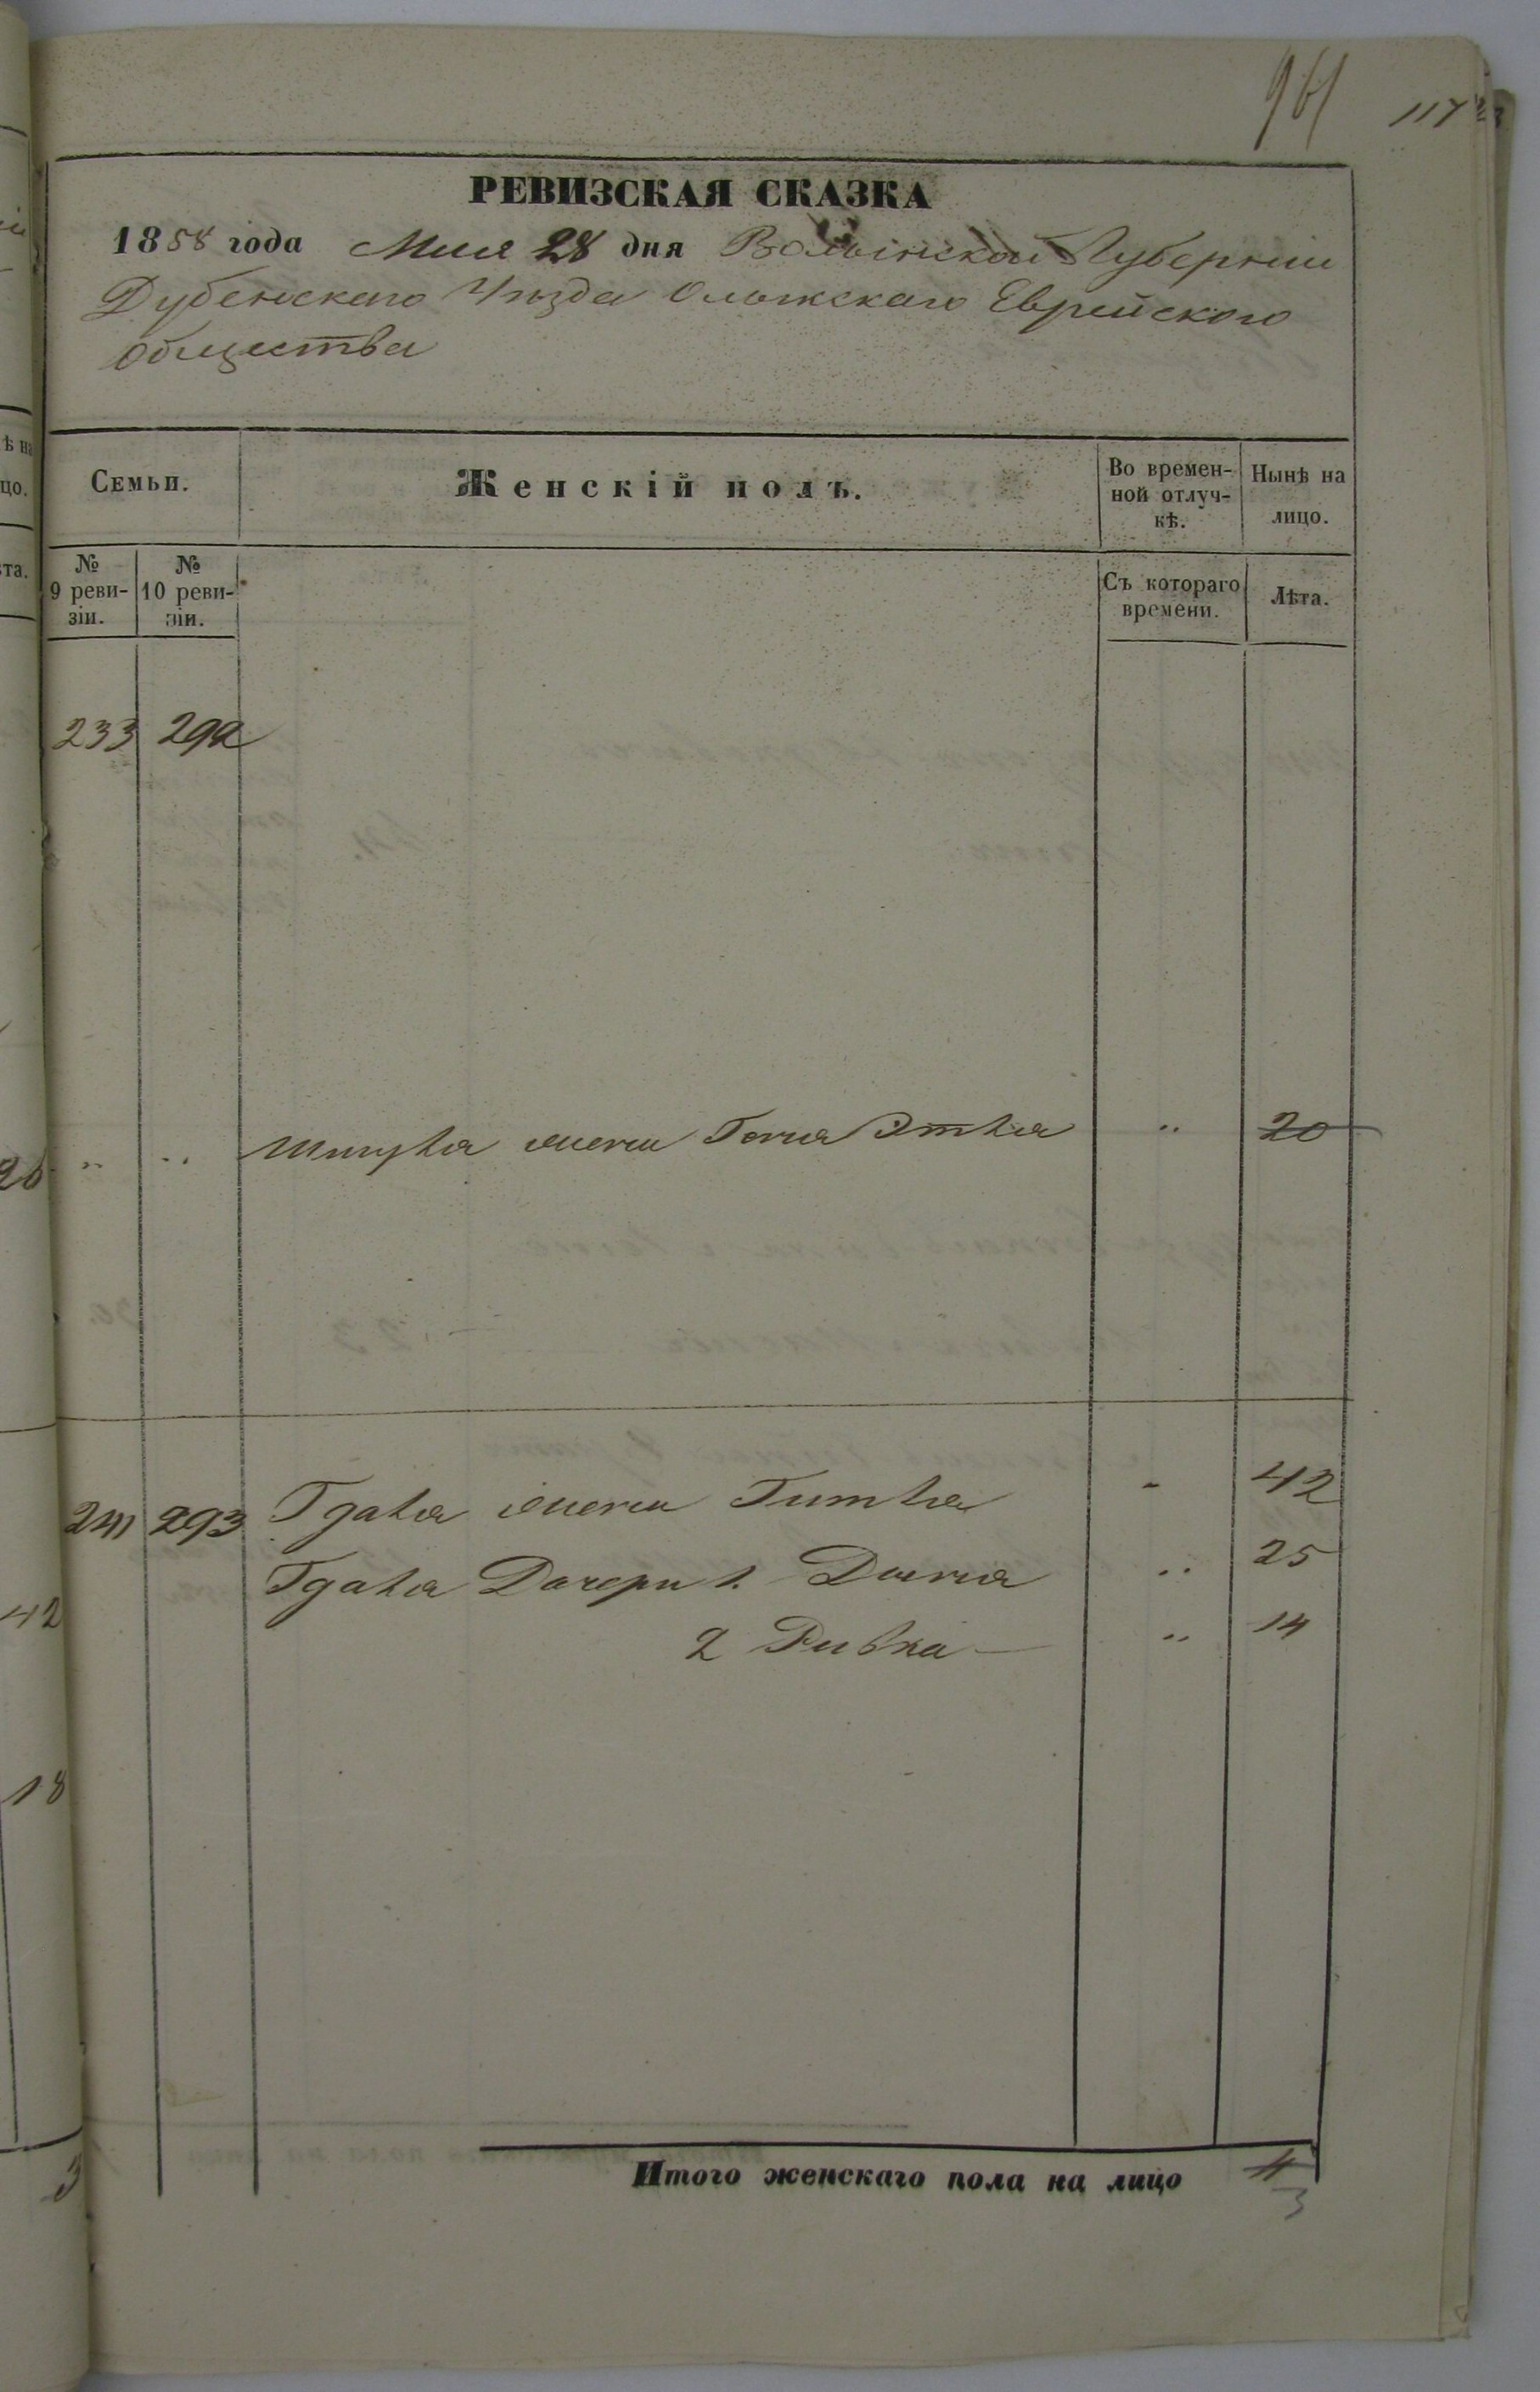 961 117
РЕВИЗСКАЯ СКАЗКА
1858 года Мая 28 дня Волынской Губернии
Дубенского Уезда Олыжскаго Еврейского
Общества
Семьи.
Женскій полъ.
Во времен-
ной отлуч-
кѣ.
Нынѣ на
лицо.
№
9 реви-
зіи.
№
10 реви-
зіи.
Съ котораго
времени.
Лѣта.
233 292
жена Этка " 20
241 293 жена - 42
Дочери 1. " 25
2 Ривка — " 14
Итого женскаго пола на лицо 4
3